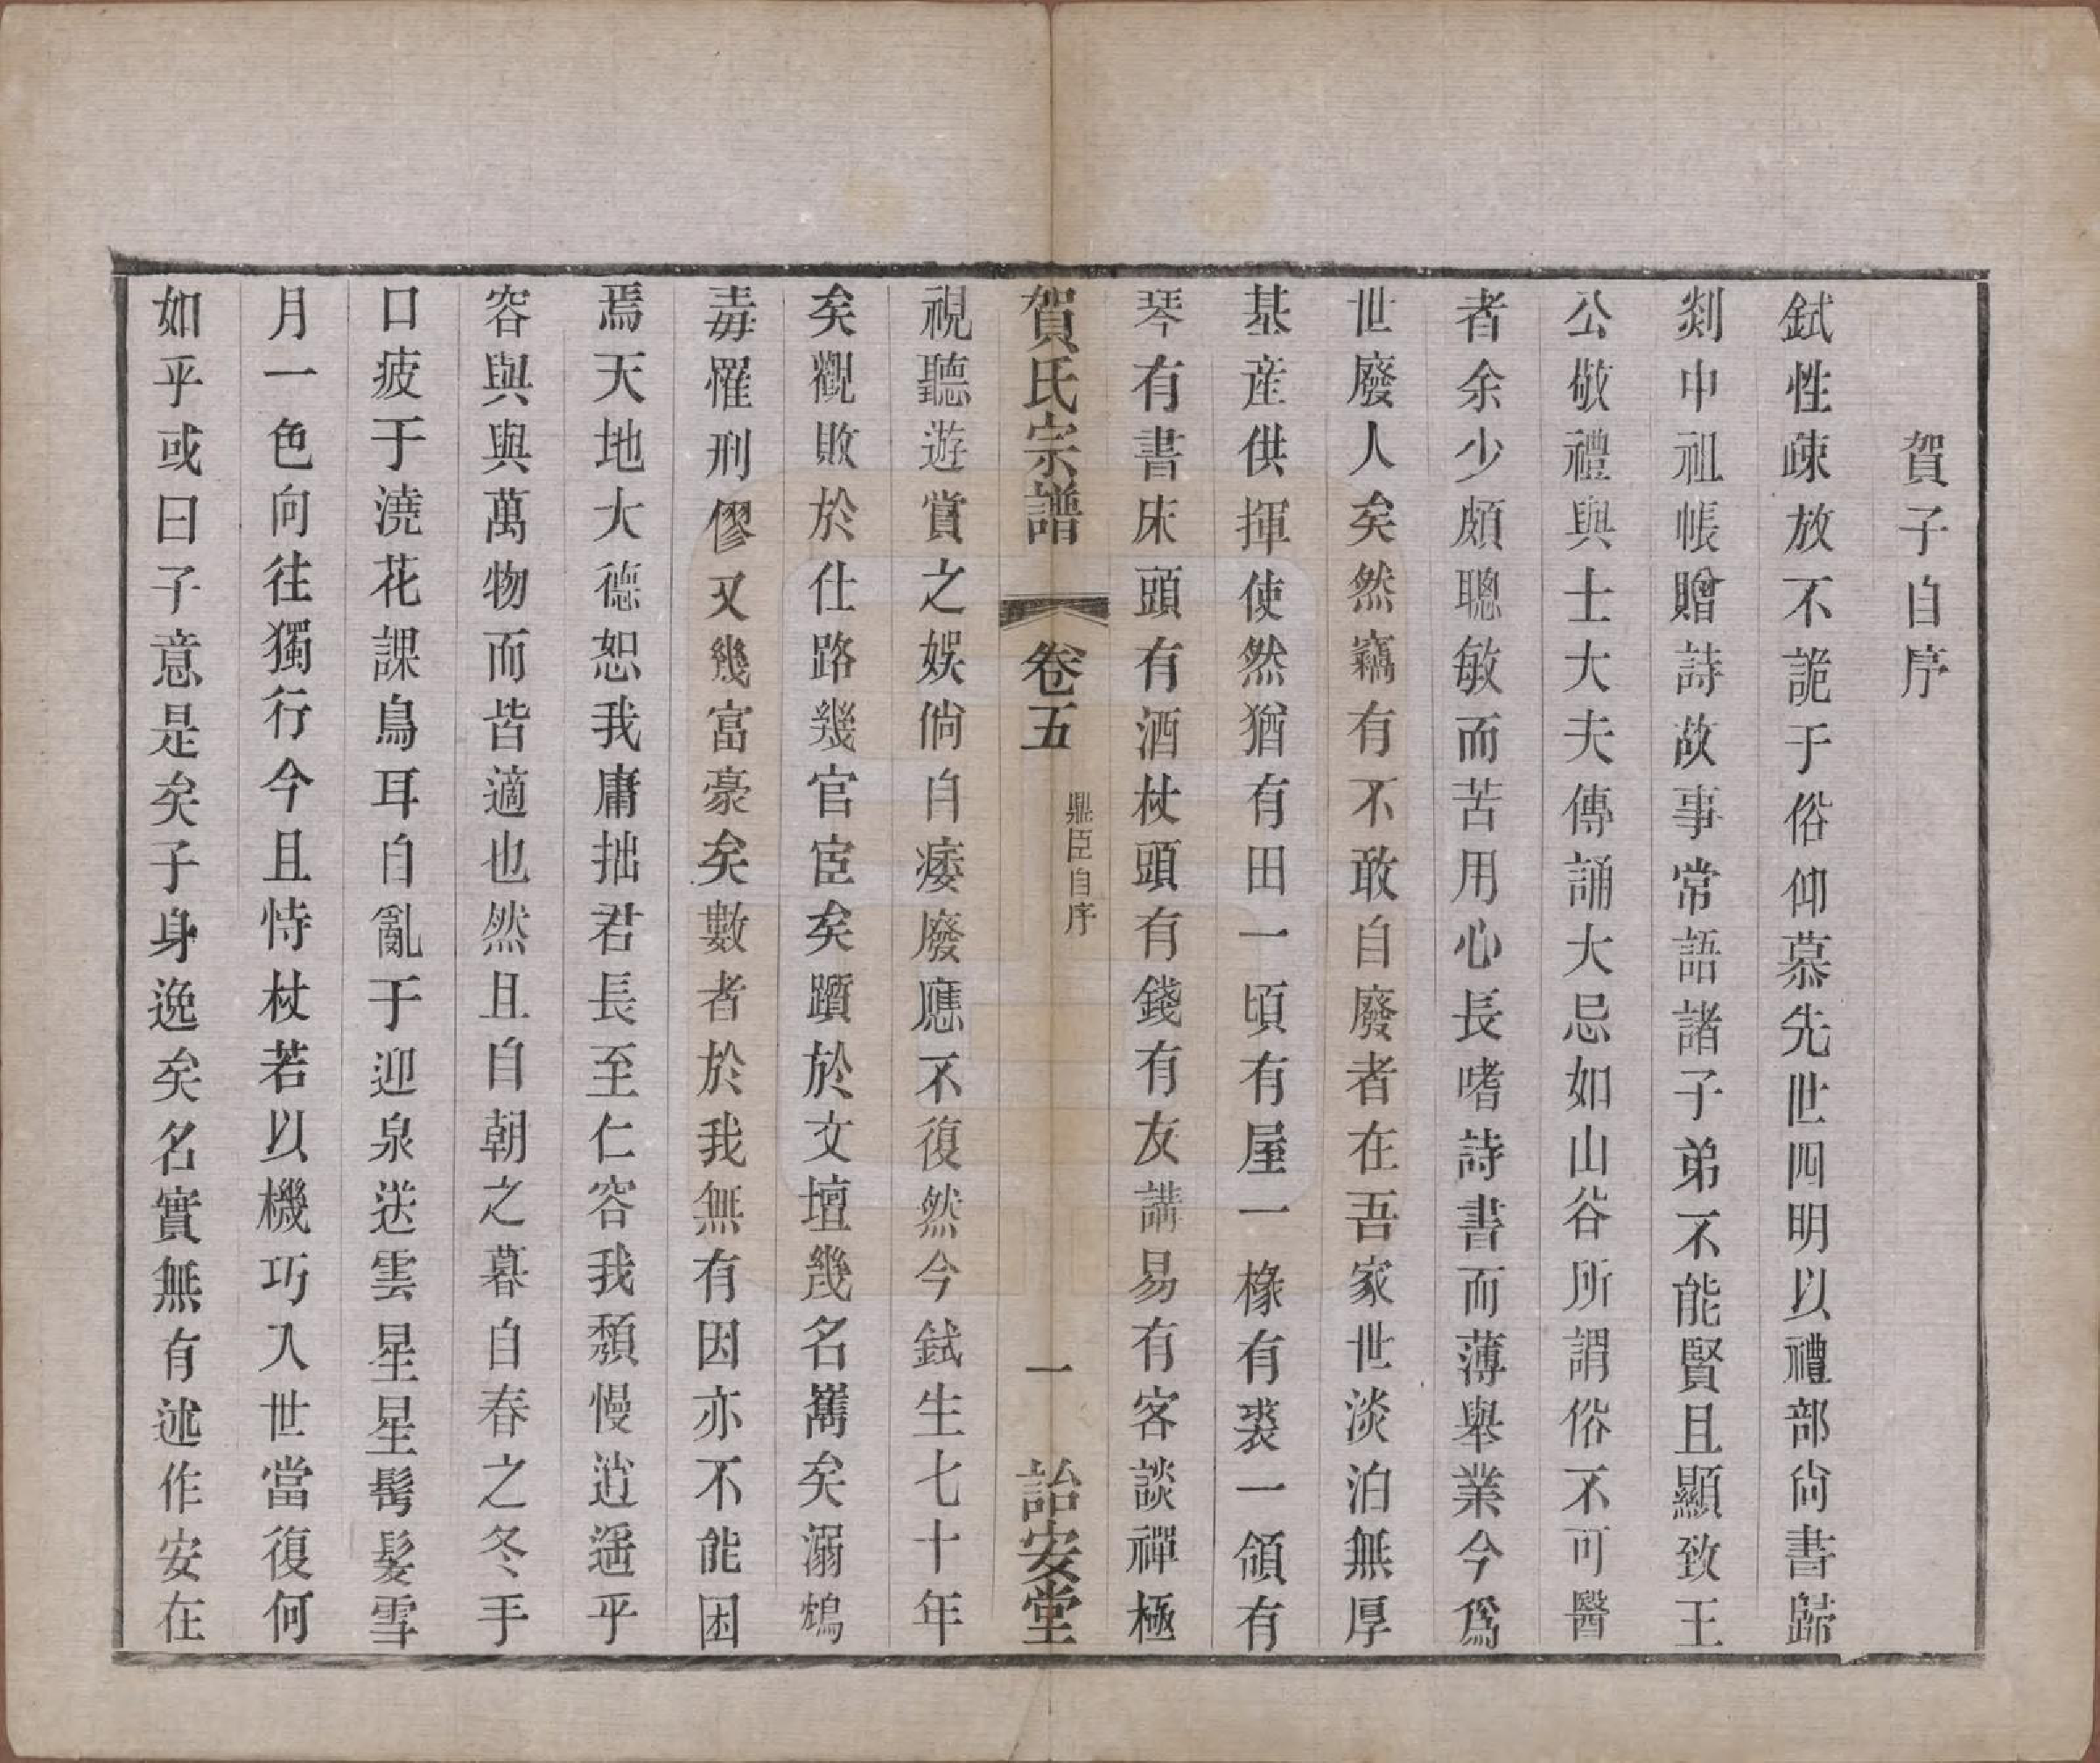 賀子自序
鉽性疎放不詭于俗仰慕先世四明以禮部尙書歸
剡中祖帳贈詩故事常語諸子弟不能賢且顯致王
公敬禮與士大夫傳誦大忌如山谷所謂俗不可醫
者余少頗聰敏而苦用心長嗜詩書而薄舉業今爲
世廢人矣然竊有不敢自廢者在吾家世淡泊無厚
基産供揮使然猶有田一頃有屋一椽有裘一領有
琴有書床頭有酒杖頭有錢有友講易有客談禪極
賀氏宗譜
卷五
鼎臣自序
一
詒安堂
視聽遊賞之娛倘自痿廢應不復然今鉽生七十年
矣觀敗於仕路幾官宦矣躓於文壇幾名雋矣溺鴆
毒罹刑僇又幾富豪矣數者於我無有因亦不能困
焉天地大德恕我庸拙君長至仁容我頹慢逍遥乎
容與與萬物而皆適也然且自朝之暮自春之冬手
口疲于澆花課鳥耳自亂于迎泉送雲星星髩髮雪
月一色向往獨行今且恃杖若以機巧入世當復何
如乎或曰子意是矣子身逸矣名實無有述作安在